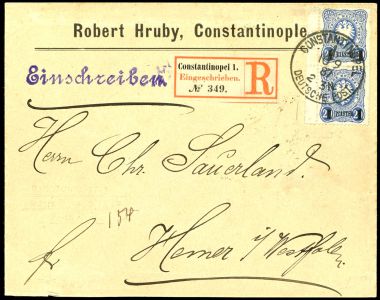 Robert Hruby, Constantinople
Einschreiben
Constantinopel 1.
Eingeschrieben.
№ 349.
R
CONSTANTINOPEL
DEUTSCHE POST
1 PIASTER 1
1 PIASTER 1
Herrn Chr. Sauerland.
154
fr
Hemer i/Westfalen.